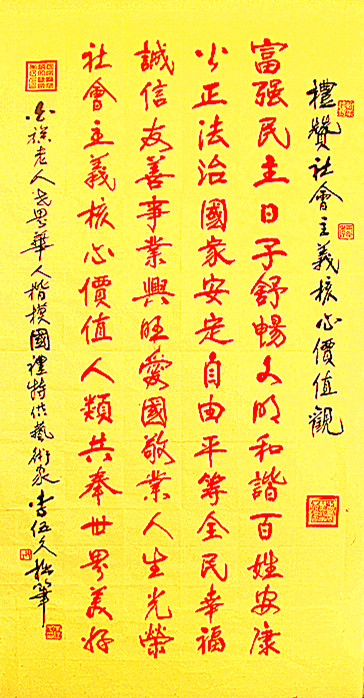 禮贊社會主義核心價值觀
富强民主日子舒暢文明和諧百姓安康
公正法治國家安定自由平等全民幸福
誠信友善事業興旺愛國敬業人生光榮
社會主義核心價值人類共奉世界美好
老人世界華人楷模國禮特供藝術家李伍久拙筆